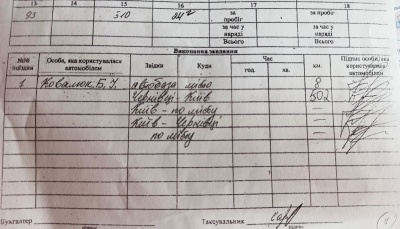 13 14 15 16 17 18
93 510
за пробіг
за пробіг
за час у наряді
за час у наряді
Всього
Всього
Виконання завдання
№№ поїздки
Особа, яка користувалася автомобілем
Звідки
Куди
Час
год.
хв.
км.
Підпис особи, яка користувалася автомобілем
1 Ковалюк Б. У. автобаза місто 8
Чернівці - Київ 502
Київ - по місту —
Київ - Чернівці —
по місту
Бухгалтер
Таксувальник